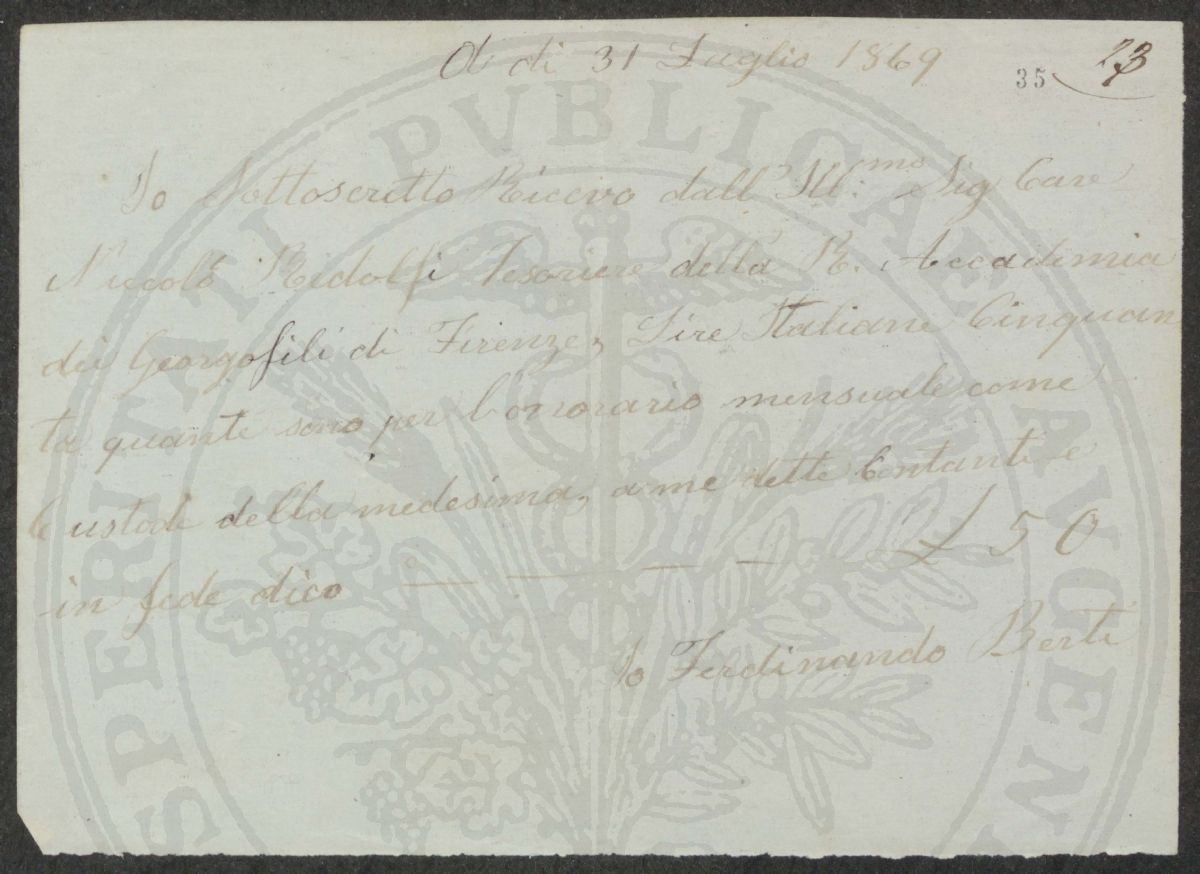 A di 31 Luglio 1869
35 23
Io Sottoscritto Ricevo dall' Ill.mo Sig Cave
Niccolò Ridolfi Tesoriere della R. Accademia
dei Georgofili di Firenze, Lire Italiane Cinquan
ta quante sono per l'onorario mensuale come
Custode della medesima, a me dette Contanti e
in fede dico — — — — £ 50
Io Ferdinando Berti
PROSPERITATI PVBLICAE AVGENDAE